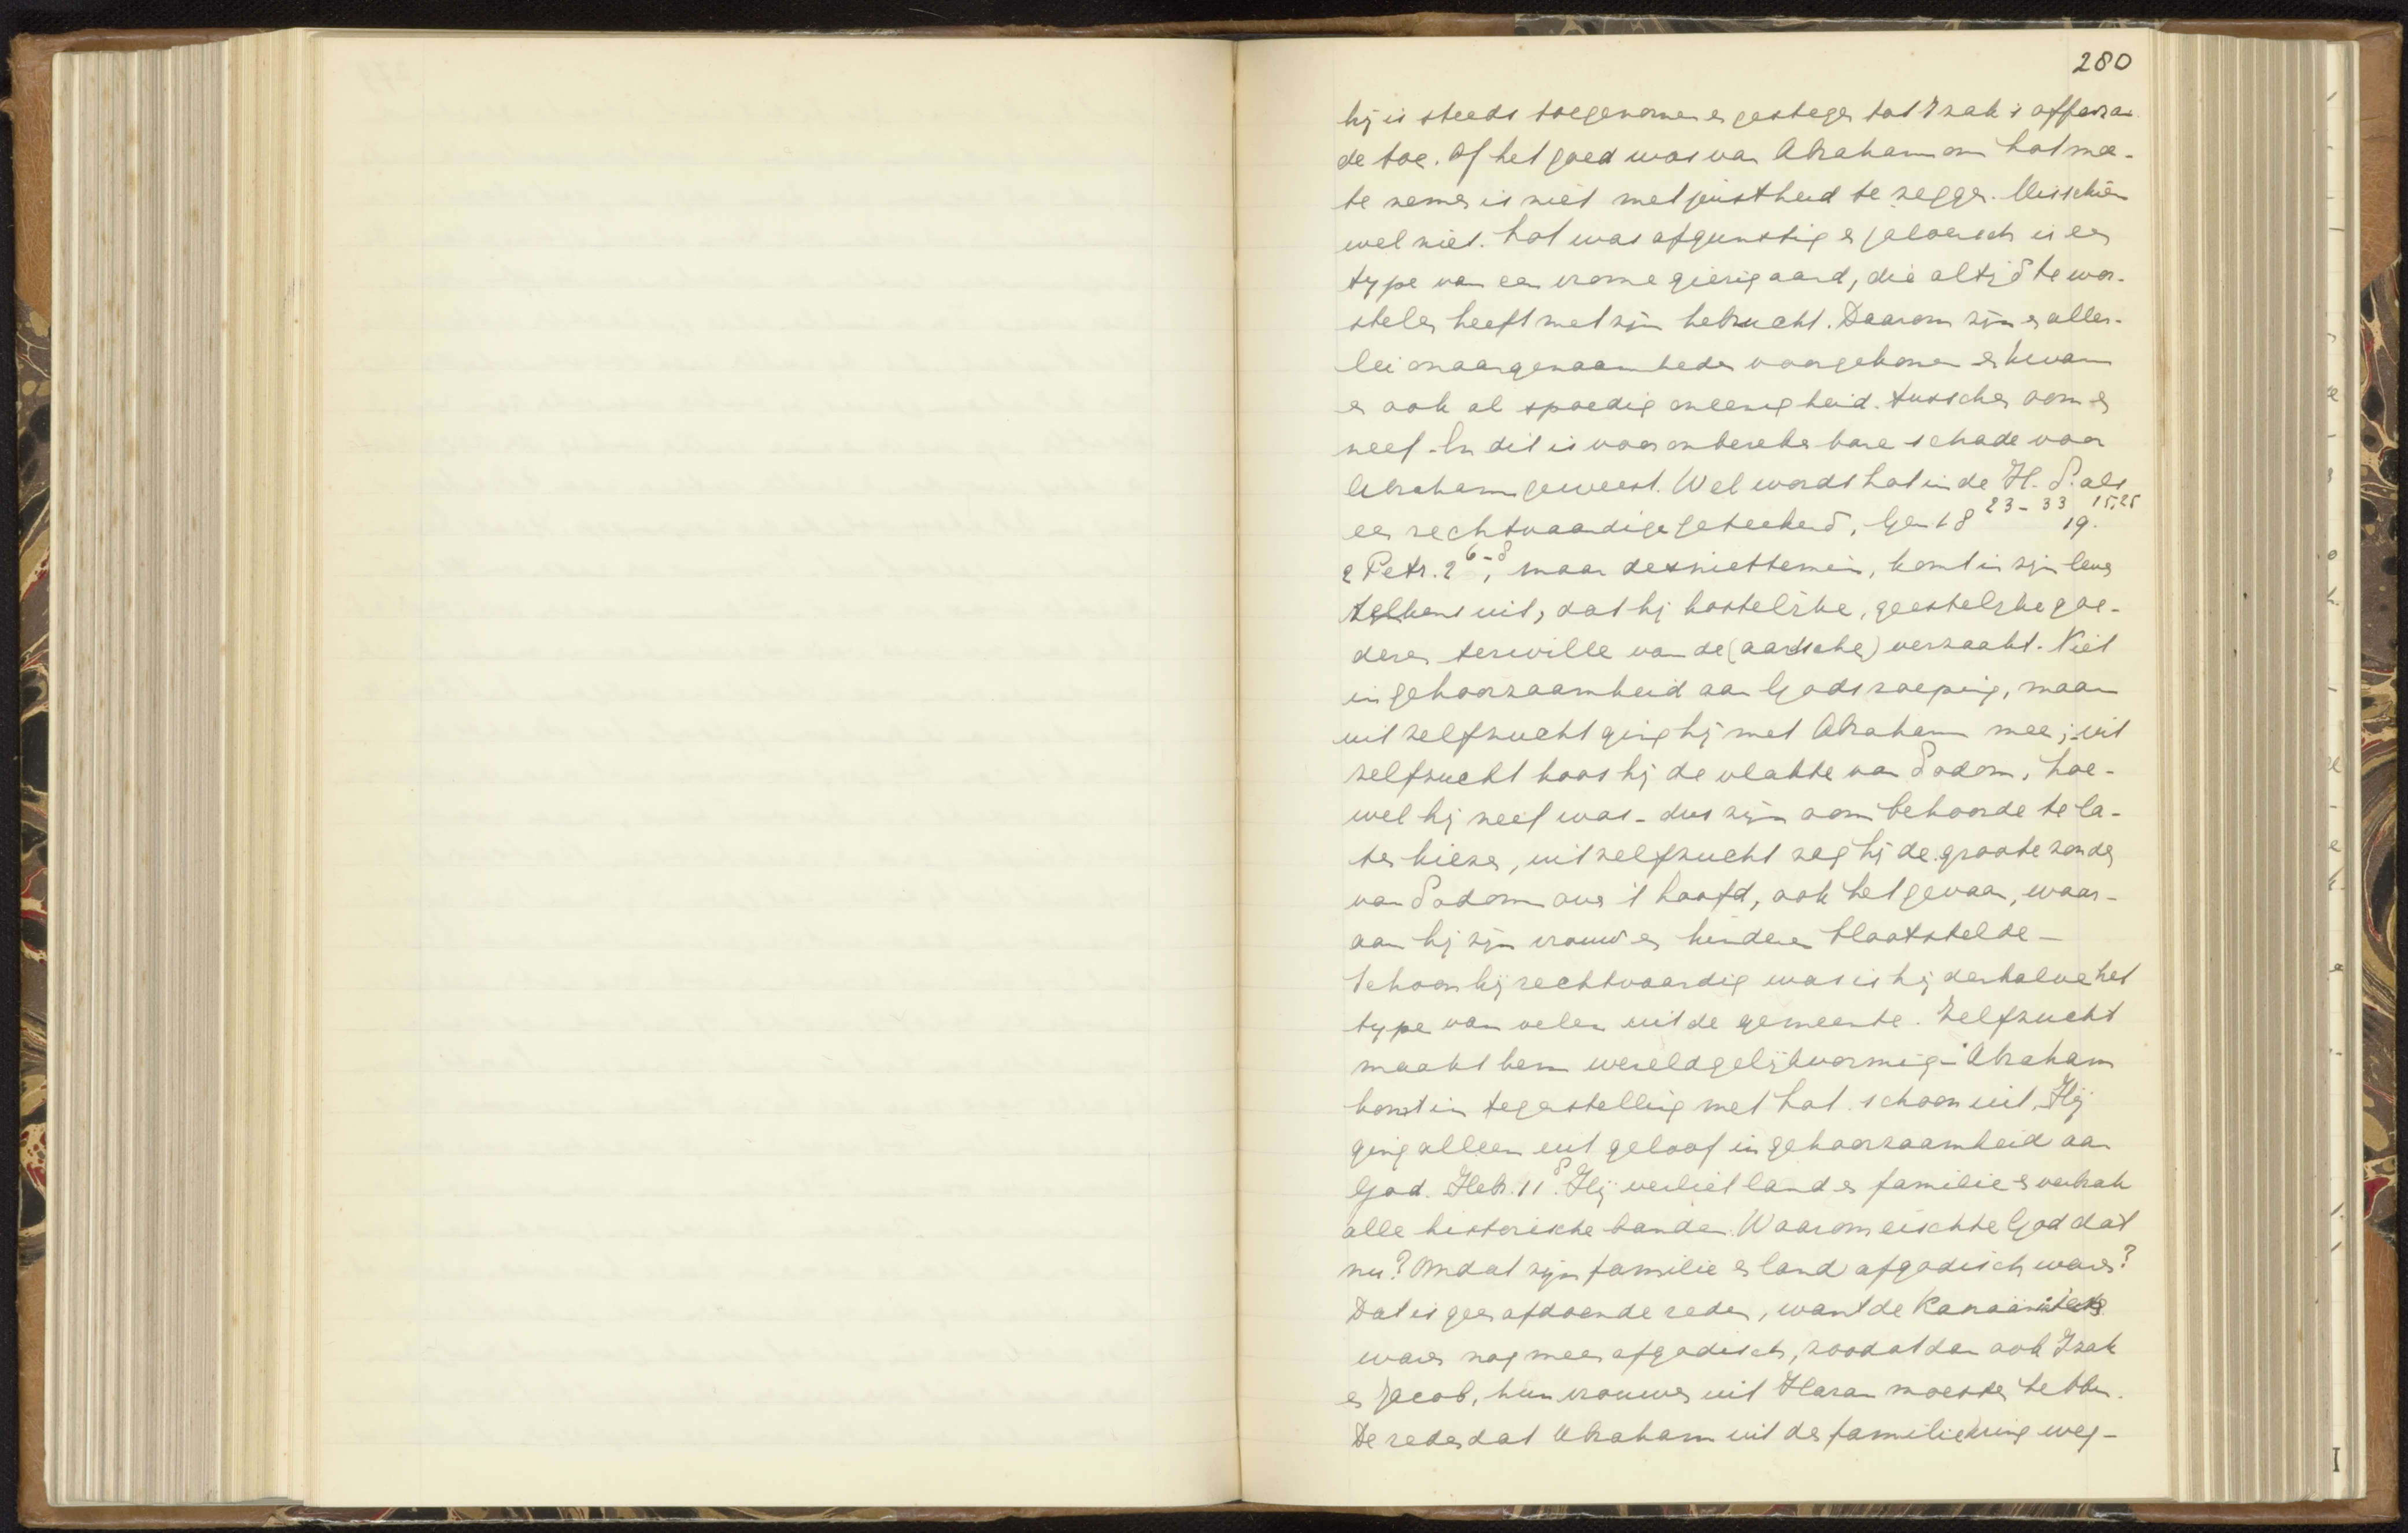 280
hij is steeds toegenomen en gestegen tot Izak's offeran-
de toe. Of het goed was van Abraham om Lot mee
te nemen is niet met juistheid te zeggen. Misschien
wel niet. Lot was afgunstig en jaloersch is een
type van een vrome gierigaard, die altijd te wor-
stelen heeft met zijn hebzucht. Daarom zijn er aller-
lei onaangenaamheden voorgekomen en kwam
er ook al spoedig oneenigheid tusschen oom en
neef. En dit is voor onberekenbare schade voor
Abraham geweest. Wel wordt Lot in de H. S. als
een rechtvaardige geteekend, Gen. 18 23-33 19. 15,25
2 Petr. 2 6-8, maar desniettemin, komt in zijn leven
telkens uit, dat hij kostelijke, geestelijke goe-
deren terwille van de (aardsche) verzaakt. Niet
in gehoorzaamheid aan Gods roeping, maar
uit zelfzucht ging hij met Abraham mee; uit
zelfzucht koos hij de vlakte van Sodom, hoe-
wel hij neef was - dus zijn oom behoorde te la-
ten kiezen, uit zelfzucht zag hij de groote zonden
van Sodom over 't hoofd, ook het gevaar, waar-
aan hij zijn vrouw en kinderen blootstelde -
Schoon hij rechtvaardig was is hij derhalve het
type van velen uit de gemeente. Zelfzucht
maakt hem wereldgelijkvormig - Abraham
komt in tegenstelling met Lot schoon uit. Hij
ging alleen uit geloof in gehoorzaamheid aan
God. Hebr. 11 8. Hij verliet land en familie en verbrak
alle historische banden. Waarom eischte God dat
nu? Omdat zijn familie en land afgodisch waren?
Dat is geen afdoende reden, want de Kanaänieten
waren nog meer afgodisch, zoodat dan ook Izak
en Jacob, hun vrouwen uit Haran moesten hebben.
De reden dat Abraham uit de familiekring weg-